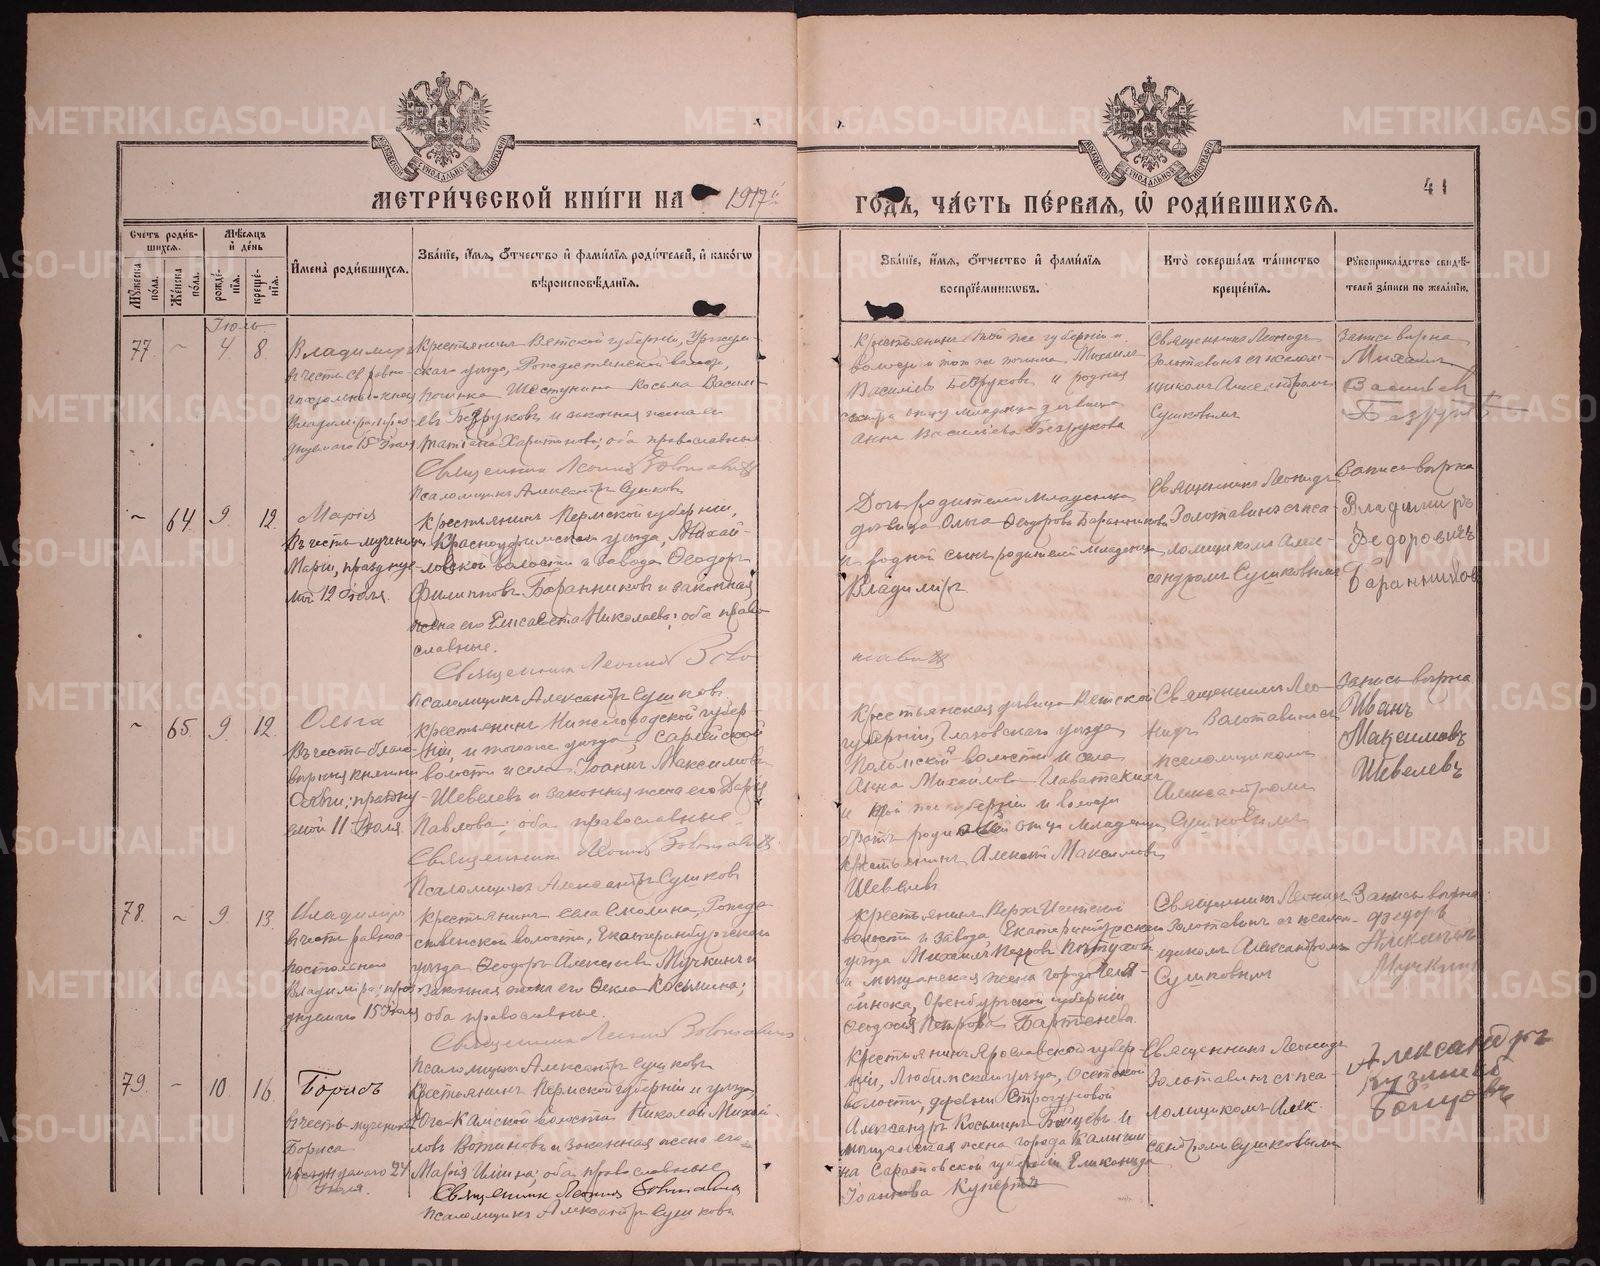 МЕТРИ́ЧЕСКОЙ КНИ́ГИ НА 1917 й
ГО́ДЪ, ЧА́СТЬ ПЕ́РВАЯ, Ѡ РОДИ́ВШИХСЯ.
41
Сче́тъ роди́вшихся.
Му́жеска по́ла.
Же́нска по́ла.
Мѣ́сяцъ и де́нь
рожде́нія.
креще́нія.
Имена̀ роди́вшихся.
Зва́ніе, и́мя, о́тчество и фами́лія роди́телей, и како́гѡ
вѣроисповѣ́данія.
Зва́ніе, и́мя, о́тчество и фами́лія
воспріе́мникѡвъ.
Кто̀ соверша́лъ та́инство
креще́нія.
Рукоприкла́дство свидѣ́-
телей за́писи по жела́нію.
Іюль
77 ~ 4 8.
Владиміръ
въ честь св. равно-
Владиміра праз-
днуемаго 15 Іюля
Крестьянинъ Вятской губерніи, Уржум-
скаго уѣзда, Рождественской волости,
починка Шестунина Косьма Василь-
евъ Безруковъ и законная жена его
Татіана Харитонова; оба православные
Священникъ Леонидъ Золотавинъ
Псаломщикъ Александръ Сушковъ
Крестьянинъ той же губерніи и
волости и того же починка Михаилъ
Василіевъ Безруковъ и родная
сестра отцу младенца дѣвица
Анна Василіева Безрукова
Священникъ Леонидъ
Золотавинъ съ псалом-
щикомъ Александромъ
Сушковымъ
Запись вѣрна
Михаилъ
Васильевъ
Безруковъ
~ 64. 9. 12.
Марія
Въ честь мученицы
Маріи, праздну-
мой 12 Іюля.
Крестьянинъ Пермской губерніи,
Красноуфимскаго уѣзда, Михай-
ловской волости и завода Ѳеодоръ
Филипповъ Баранниковъ и законная
жена его Елисавета Николаева; оба право-
славные.
Священникъ Леонидъ Золо
тавинъ
Псаломщикъ Александръ Сушковъ
Дочь родителей младенца
дѣвица Ольга Ѳеодорова Баранникова
и родной сынъ родителей младенца
Владиміръ
Священникъ Леонидъ
Золотавинъ съ пса-
ломщикомъ Алек-
сандромъ Сушковымъ
Запись вѣрна
Владимиръ
Федоровичъ
Баранниковъ
~ 65. 9 12.
Ольга
Въ честь благо-
вѣрныя княгини
Ольги; праздну-
емой 11 Іюля
Крестьянинъ Нижегородской губер-
ніи, и того же уѣзда,
волости и села Іоаннъ Максимовъ
Шевелевъ и законная жена его Дарія
Павлова; оба православные.
Священникъ Леонидъ Золотавинъ
Псаломщикъ Александръ Сушковъ
Крестьянская дѣвица Вятской
губерніи, Глазовскаго уѣзда,
волости и села
Анна Михаилова Главатскихъ
и той же губерніи и волости
братъ родной отцу младенца
крестьянинъ Алексій Максимовъ
Шевелевъ
Священникъ Лео-
нидъ Золотавинъ съ
псаломщикомъ
Александромъ
Сушковымъ
Запись вѣрна
Иванъ
Максимовъ
Шевелевъ
78. ~ 9 13.
Владиміръ
въ честь равноа-
постольнаго
Владиміра; праз-
днуемаго 15 Іюля
Крестьянинъ села Смолина, Рожде-
ственской волости, Екатеринбургскаго
уѣзда Ѳеодоръ Алексѣевъ Мучкинъ и
законная жена его Ѳекла Косьмина;
оба православные.
Священникъ Леонидъ Золотавинъ
Псаломщикъ Александръ Сушковъ
Крестьянинъ Верхъ-Исетской
волости и завода Екатеринбургскаго
уѣзда Михаилъ Петровъ Пѣтуховъ
и мѣщанская жена города Челя-
бинска, Оренбургской губерніи
Ѳеодосія Петрова Бартенева.
Священникъ Леонидъ
Золотавинъ съ псалом-
щикомъ Александромъ
Сушковымъ
Запись вѣрна.
Федоръ
Мучкинъ
79. ~ 10. 16.
Борисъ
въ честь мученика
Бориса
празднуемаго 24
Іюля.
Крестьянинъ Пермской губерніи и уѣзда,
Юго-Камской волости Николай Михай-
ловъ и законная жена его
Марія оба православные
Священникъ Леонидъ Золотавинъ
Псаломщикъ Александръ Сушковъ
Крестьянинъ Ярославской губер-
ніи, Любимскаго уѣзда, Осетской
волости, деревни
Александръ Косьминъ и
мѣщанская жена города Камыши-
на Саратовской губерніи
Іоаннова
Священникъ Леонидъ
Золотавинъ съ пса-
ломщикомъ Алек-
сандромъ Сушковымъ
Александръ
Кузмичъ
METRIKI.GASO-URAL.RU